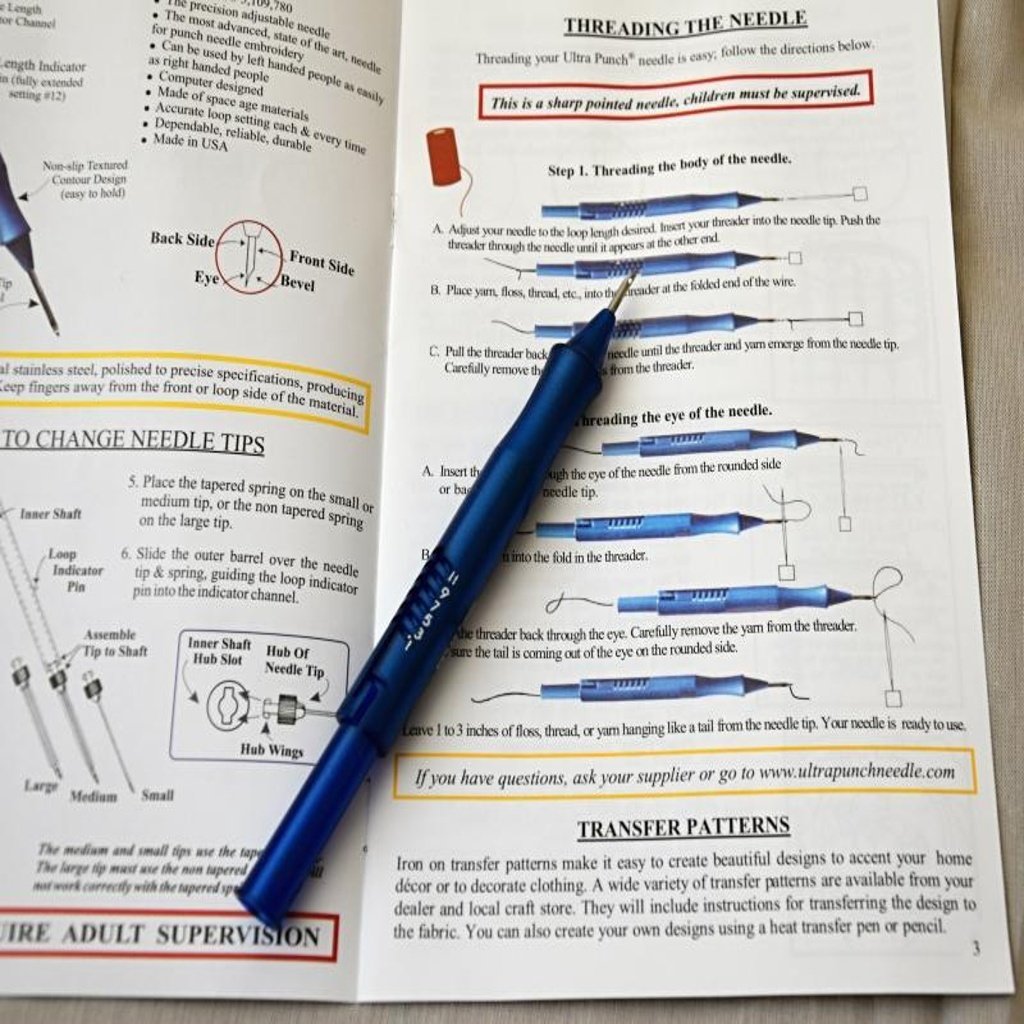 Length
or Channel
Length Indicator
(fully extended
setting #12)
5,109,780
• The precision adjustable needle
• The most advanced, state of the art, needle
for punch needle embroidery
• Can be used by left handed people as easily
as right handed people
• Computer designed
• Made of space age materials
• Accurate loop setting each & every time
• Dependable, reliable, durable
• Made in USA
Non-slip Textured
Contour Design
(easy to hold)
Back Side
Front Side
Eye
Bevel
al stainless steel, polished to precise specifications, producing
Keep fingers away from the front or loop side of the material.
TO CHANGE NEEDLE TIPS
5. Place the tapered spring on the small or
medium tip, or the non tapered spring
on the large tip.
6. Slide the outer barrel over the needle
tip & spring, guiding the loop indicator
pin into the indicator channel.
Inner Shaft
Loop
Indicator
Pin
Assemble
Tip to Shaft
Inner Shaft
Hub Slot
Hub Of
Needle Tip
Hub Wings
Large
Medium
Small
The medium and small tips use the
The large tip must use the non tapered
not work correctly with the tapered
UIRE ADULT SUPERVISION
THREADING THE NEEDLE
Threading your Ultra Punch® needle is easy, follow the directions below.
This is a sharp pointed needle, children must be supervised.
Step 1. Threading the body of the needle.
A. Adjust your needle to the loop length desired. Insert your threader into the needle tip. Push the
threader through the needle until it appears at the other end.
B. Place yarn, floss, thread, etc., into the threader at the folded end of the wire.
C. Pull the threader back needle until the threader and yarn emerge from the needle tip.
Carefully remove from the threader.
hreading the eye of the needle.
A. Insert the eye of the needle from the rounded side
or needle tip.
B. into the fold in the threader.
the threader back through the eye. Carefully remove the yarn from the threader.
sure the tail is coming out of the eye on the rounded side.
Leave 1 to 3 inches of floss, thread, or yarn hanging like a tail from the needle tip. Your needle is ready to use.
If you have questions, ask your supplier or go to www.ultrapunchneedle.com
TRANSFER PATTERNS
Iron on transfer patterns make it easy to create beautiful designs to accent your home
décor or to decorate clothing. A wide variety of transfer patterns are available from your
dealer and local craft store. They will include instructions for transferring the design to
the fabric. You can also create your own designs using a heat transfer pen or pencil.
3
11 9 7 5 3 1